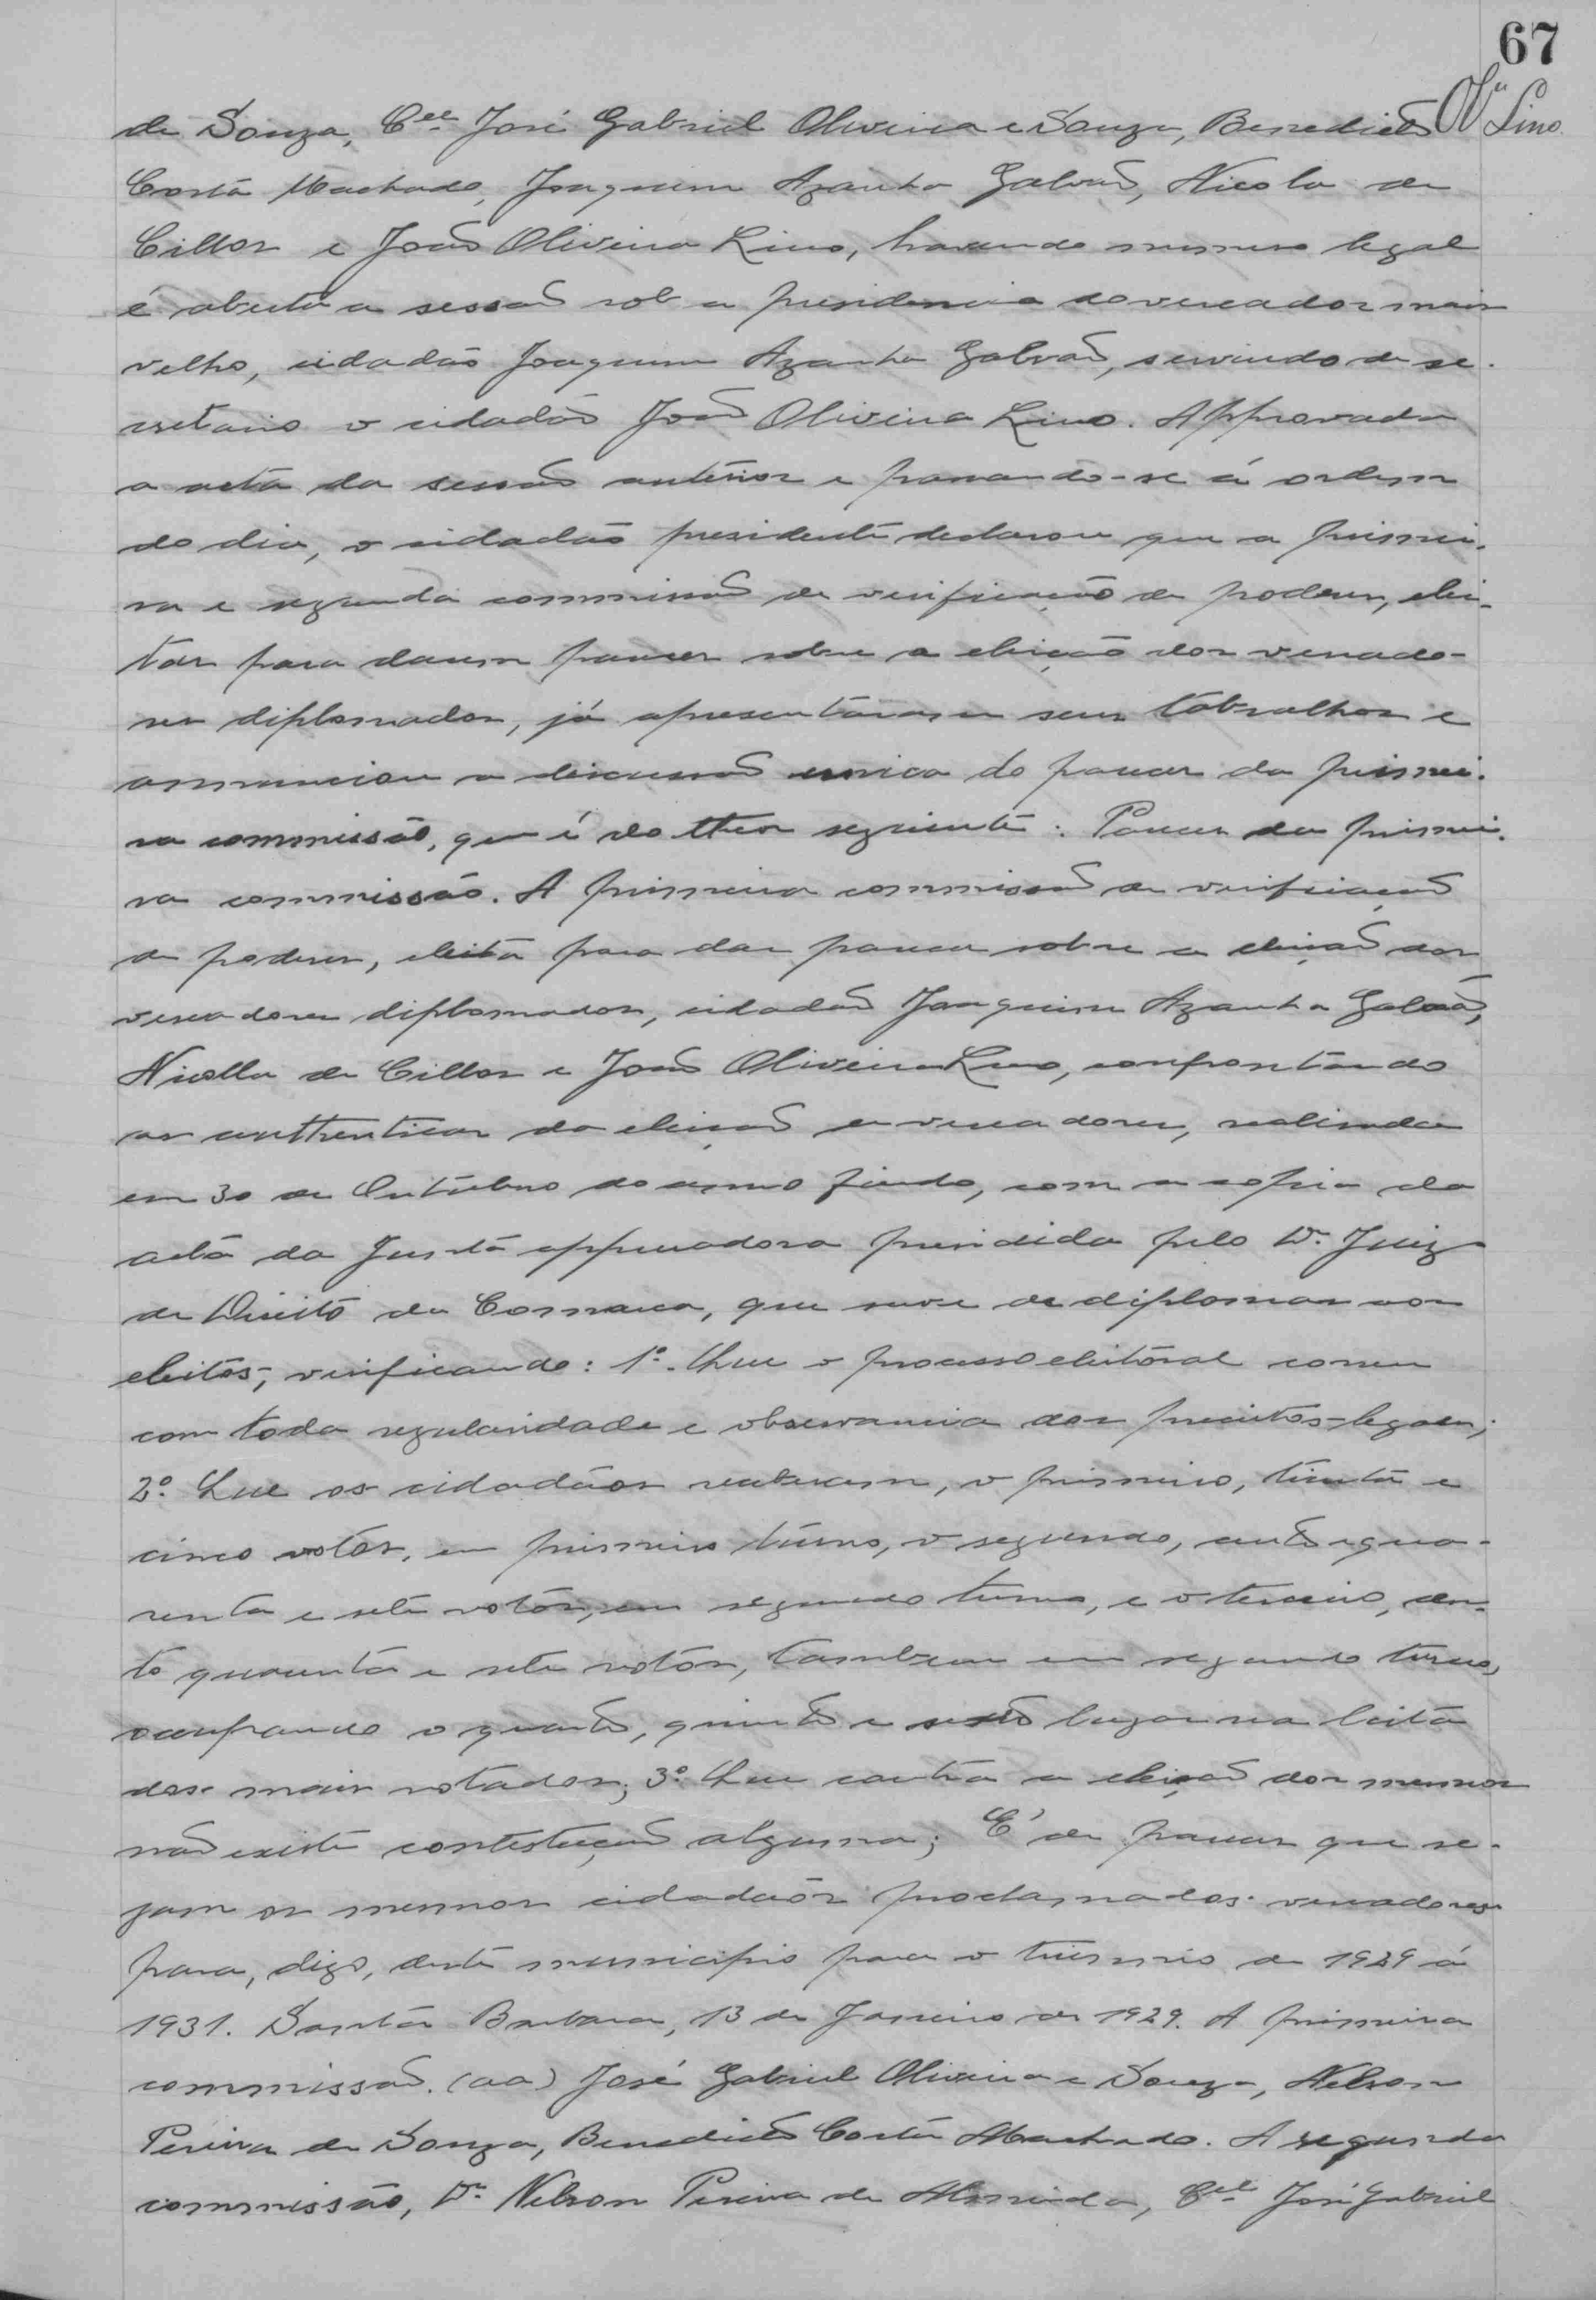 67
Olª Lino
de Souza, Cel José Gabriel Oliveira e Souza, Benedicto
Costa Machado, Joaquim Azanha Galvão, Nicola de
Cillos e João Oliveira Lino, havendo numero legal
é aberta a sessão sob a presidencia do vereador mais
velho, cidadão Joaquim Azanha Galvão, servindo de se-
cretario o cidadão João Oliveira Lino. Approvada
a acta da sessão anterior e passando-se á ordem
do dia, o cidadão presidente declarou que a primei-
ra e segunda commissão de verificação de poderes, elei-
tas para darem parecer sobre a eleição dos vereado-
res diplomados, já apresentaram seus tabralhos e
annunciou a discussão unica do parecer da primei-
ra commissão, que é do theor seguinte: Parecer da primei-
ra commissão. A primeira commissão de verificação
de poderes, eleita para dar parecer sobre a eleição dos
vereadores diplomados, cidadão Joaquim Azanha Galvão,
Nicolla de Cillos e João Oliveira Lino, confrontando
as authenticas da eleição de vereadores, realisada
em 30 de Outubro do anno findo, com a copia da
acta da Junta appuradora presidida pelo Dr. Juiz
de Direito da Comarca, que serve de diplomas aos
eleitos; verificando: 1º. Que o processo eleitoral correu
com toda regularidade e observancia dos preceitos legaes;
2º. Que os cidadãos receberam, o primeiro, trinta e
cinco votos, em primeiro turno, o segundo, cento e qua-
renta e sete votos, em segundo turno, e o terceiro, cen-
to quarenta e sete votos, tambem em segundo turno,
occupando o quarto, quinto e sexto lugar na lista
dos mais votados; 3º. Que contra a eleição dos mesmos
não existe contestação alguma; É de parecer que se-
jam os mesmos cidadãos proclamados vereadores
para, digo, deste municipio para o triennio de 1929 á
1931. Santa Barbara, 13 de Janeiro de 1929. A primeira
commissão. (aa) José Gabriel Oliveira e Souza, Nelson
Pereira de Souza, Benedicto Costa Machado. A segunda
commissão, Dr. Nelson Pereira de Almeida, Cel José Gabriel